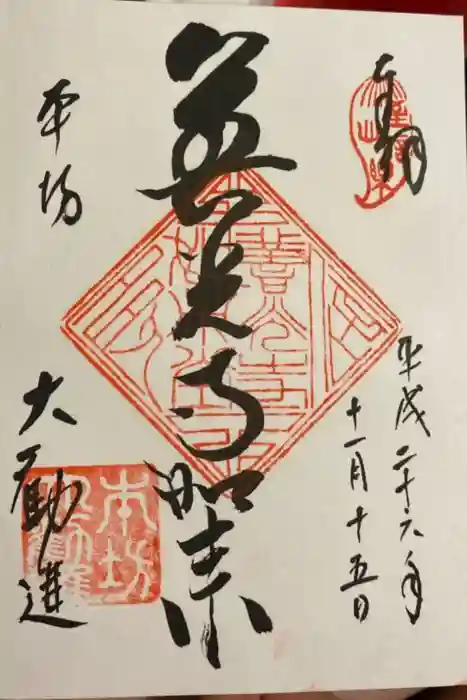 奉拝
平成二十六年
十一月十五日
善光寺如来
本坊
大勧進
本坊